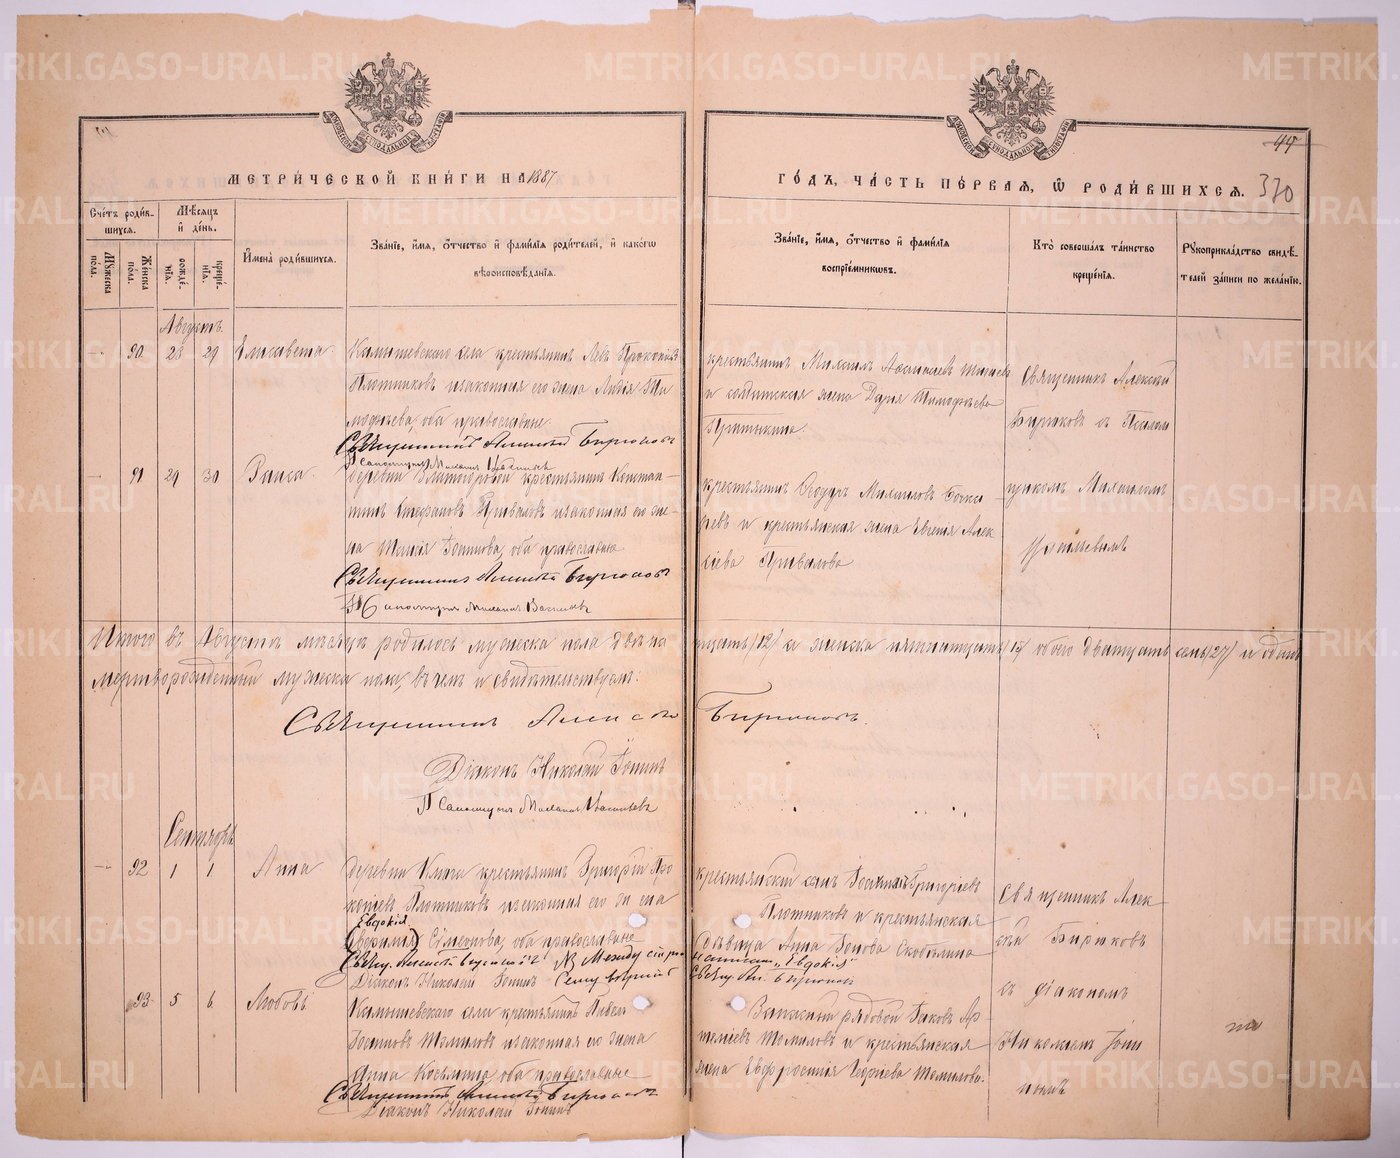 МЕТРИ́ЧЕСКОЙ КНИ́ГИ НА 1887
ГО́ДЪ, ЧА́СТЬ ПЕ́РВАЯ, Ѿ РОДИ́ВШИХСѦ.
44
330
Сче́тъ роди́в-
шихся.
Мѣ́сяцъ
и́ де́нь.
Му́жеска
по́ла.
Же́нска
по́ла.
рожде́-
нія.
креще́-
нія.
И́мена роди́вшихся.
Зва́ніе, и́мя, о́тчество и́ фами́лія роди́телей, и́ како́гѡ
вѣроисповѣ́данія.
Зва́ніе, и́мя, о́тчество и́ фами́лія
воспріе́мниковъ.
Кто̀ соверша́лъ та́инство
креще́нія.
Рукоприкла́дство свидѣ́-
телей за́писи по жела́нію.
Августъ.
90 28 29 Елисавета
Камышевскаго села крестьянинъ Левъ Прокопіевъ
Плотниковъ и законная его жена Лидія Ти
мофѣева, оба православные
Священникъ Алексій Бирюковъ
Псаломщикъ Михаилъ
крестьянинъ Михаилъ Аѳанасіевъ
и солдатская жена Дарья Тимофѣева
Притыкина.
Священникъ Алексій
Бирюковъ съ Псалом
91 29 30 Раиса
деревни Златогоровой крестьянинъ Констан-
тинъ Стефановъ Приваловъ и законная его же-
на Таисія Іоаннова, оба православные
Священникъ Алексій Бирюковъ
Псаломщикъ Михаилъ
крестьянинъ Ѳеодоръ Михаиловъ Бочка
ревъ и крестьянская жена Евгенія Алек
сіева Привалова
щикомъ Михаиломъ
Итого въ Августѣ мѣсяцѣ родилось мужеска пола двѣна
дцать /12/ а женска пятнатцать /15/ обоего двадцать семь /27/ и одинъ
мертворожденный мужеска пола, въ чемъ и свидѣтельствуемъ:
Священникъ Алексій Бирюковъ.
Діаконъ Николай Іонинъ
Псаломщикъ Михаилъ
Сентябрь
92 1 1 Анна
деревни Ключа крестьянинъ Григорій Про
копіевъ Плотниковъ и законная его жена
Евдокія
Симеонова, оба православные
Свящ. Алексій Бирюковъ Между строкъ
написано „Евдокія"
Діаконъ Николай Іонинъ
Свящ. Ал. Бирюковъ
крестьянскій сынъ Іоаннъ Григоріевъ
Плотниковъ и крестьянская
дѣвица Анна Іонова Скобелина
Священникъ Алек-
сій Бирюковъ
съ діакономъ
93 5 6 Любовь
Камышевскаго села крестьянинъ Павелъ
Іоанновъ Томиловъ и законная его жена
Анна Косьмина оба православные
Священникъ Алексій Бирюковъ
Діаконъ Николай Іонинъ
Запасный рядовой Іаковъ Ар
теміевъ Томиловъ и крестьянская
жена Евфросинія Георгіева Томилова.
Николаемъ Іони
нымъ
по
METRIKI.GASO-URAL.RU